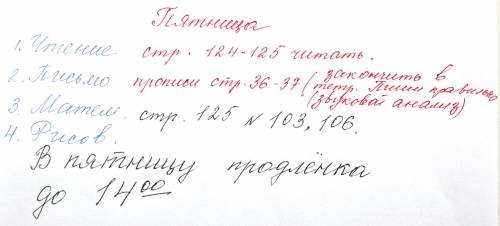 Пятница
1. Чтение стр. 124-125 читать.
2. Письмо прописи стр. 36-37 (закончить в
тетр. Пиши правильно
(звуковой анализ)
3. Матем. стр. 125 № 103, 106.
4. Рисов.
В пятницу продлёнка
до 14⁰⁰